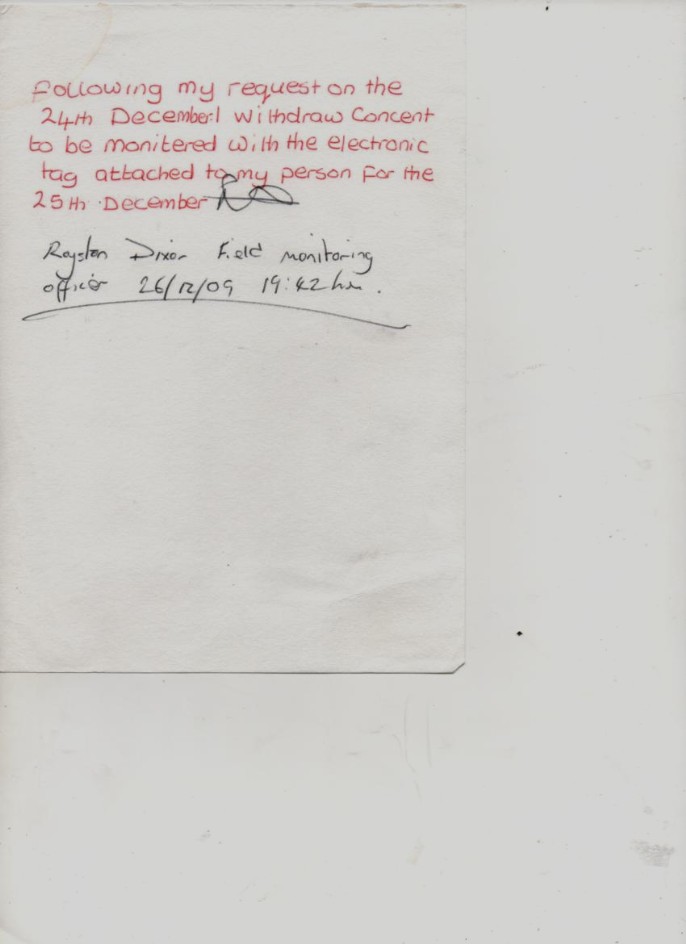 Following my request on the
24th December I withdraw Concent
to be monitered with the electronic
tag attached to my person for the
25th December
Royston Dixon Field monitoring
officer 26/12/09 19:42 hrs.